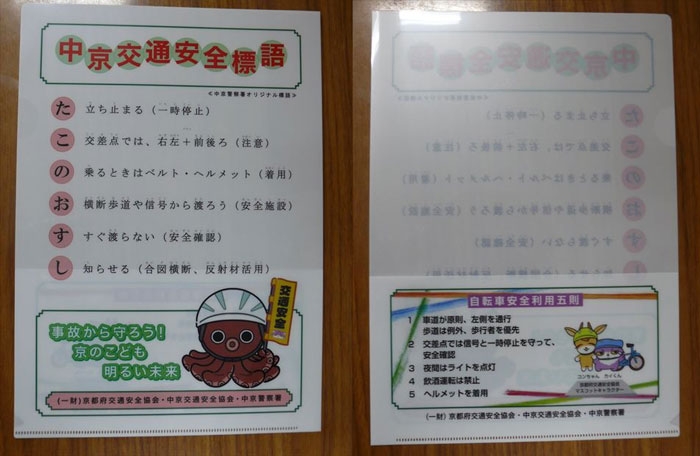 中京交通安全標語
≪中京警察署オリジナル標語≫
た 立ち止まる（一時停止）
こ 交差点では、右左＋前後ろ（注意）
の 乗るときはベルト・ヘルメット（着用）
お 横断歩道や信号から渡ろう（安全施設）
す すぐ渡らない（安全確認）
し 知らせる（合図横断、反射材活用）
交通安全
事故から守ろう！
京のこども
明るい未来
(一財)京都府交通安全協会・中京交通安全協会・中京警察署
自転車安全利用五則
車道が原則、左側を通行
歩道は例外、歩行者を優先
2 交差点では信号と一時停止を守って、
安全確認
3 夜間はライトを点灯
4 飲酒運転は禁止
5 ヘルメットを着用
京都府交通安全協会
マスコットキャラクター
(一財) 京都府交通安全協会・中京交通安全協会・中京警察署